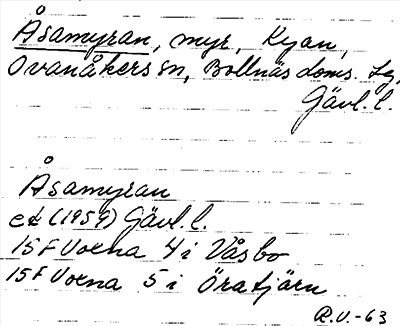 Åsamyran, myr, Kyan,
Ovanåkers sn, Bollnäs doms. lg,
Gävl. l.
Åsamyran
ek (1959) Gävl. l.
15F Voxna 4i Våsbo
15F Voxna 5i Öratjärn
R.V.-63